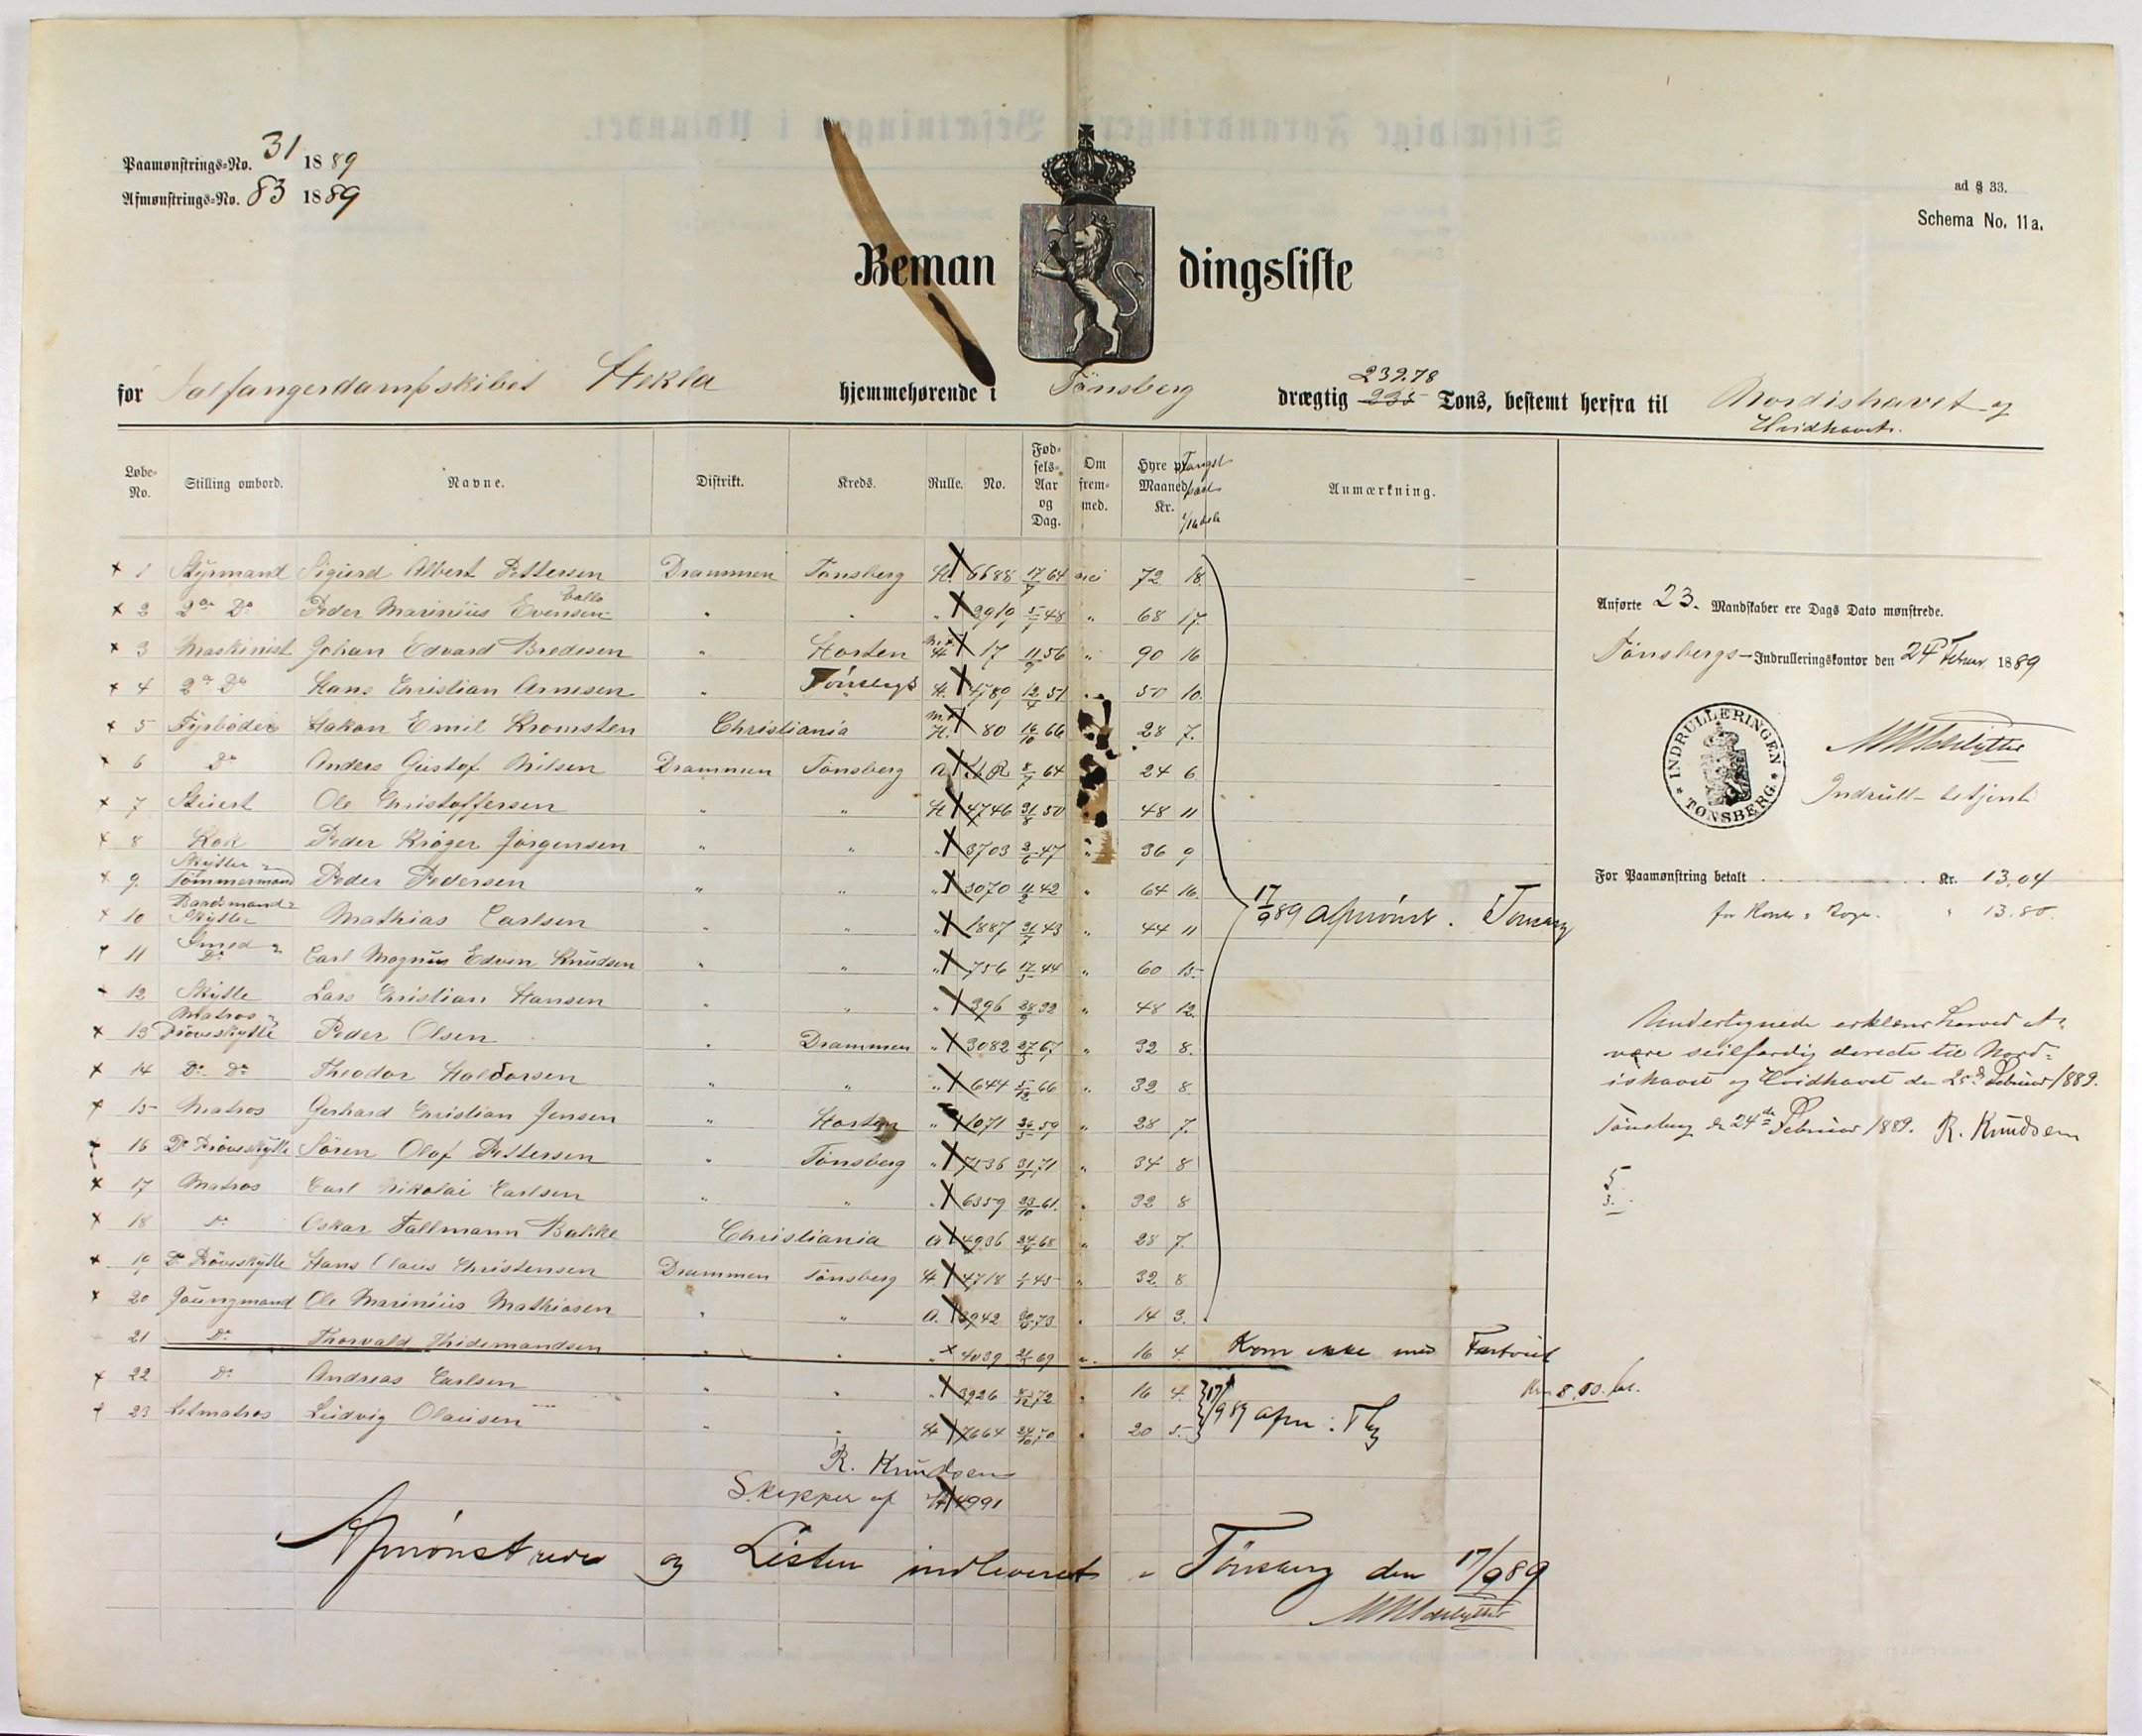 Paamønstrings-No. 31 1889
Afmønstrings-No. 83 1889
ad § 33.
Schema No. 11a.
Bemandingsliste
for Sælfangerdampskibet Hekla hjemmehørende i Tönsberg drægtig 239.78 235 Tons, bestemt herfra til Nordishavet og
Hvidhavet.
Løbe-No. Stilling ombord. Navne. Distrikt. Kreds. Rulle. No. Fødsels-Aar og Dag. Om fremmed. Hyre pr. Maaned Kr. Fangst part 1/16 dele Anmærkning.
1 Styrmand Sigurd Albert Pettersen Drammen Tönsberg H. 6688 17/7 64 nei 72 18.
2 2den Do Peder Marinius Evensen Callo " " " 3910 5/1 48 " 68 17.
3 Maskinist Johan Edvard Bredesen " Horten H 17 11/9 56 " 90 16
4 2den Do Hans Christian Arnesen " Tönsberg H. 4789 12/4 51 " 50 10.
5 Fyrböder Hakon Emil Kromsten Christiania H. 80 14/10 66 28 7.
6 Do Anders Gustof Nilsen Drammen Tönsberg A 8/7 64 24 6
7 Stuert Ole Christoffersen " " H 4746 31/8 50 48 11
8 Kok Peder Kröger Jörgensen " " " 3703 2/6 47 " 36 9
9. Skytter = Tömmermand Peder Pedersen " " " 3070 11/2 42 " 64 16.
10 Baadsmand = Skytter Mathias Carlsen " " " 1887 31/7 43 " 44 11
11 Smed = Do Carl Magnus Edvin Knudsen " " " 756 17/5 44 " 60 15
12 Skytte Lars Christian Hansen " " " 396 28/9 32 " 48 12.
13 Matros = Pröveskytte Peder Olsen " Drammen " 3082 27/3 67 " 32 8.
14 Do Do Theodor Haldorsen " " " 644 5/12 66 " 32 8
15 Matros Gerhard Christian Jensen " Horten " 1071 26/5 59 " 28 7.
16 Do Pröveskytte Sören Olaf Pettersen " Tönsberg " 7536 31/1 71 " 34 8
17 Matros Carl Nikolai Carlsen " " " 6359 23/10 61. " 32 8
18 Do Oskar Tallmann Bakke Christiania A 4936 24/9 68 " 28 7.
19 Do Pröveskytte Hans Claus Christensen Drammen Tönsberg H 4718 1/1 45 " 32. 8
20 Joungmand Ole Marinius Mathiasen " " A. 3942 73 " 14 3.
21 Do Thorvald Thidemandsen " " " 4039 69 " 16 4. Kom ikke med Fartöiet
22 Do Andreas Carlsen " " " 3926 72 " 16 4.
23 Letmatros Ludvig Olausen " " H 7664 24/10 70 " 20 5.
17/9 89 afmönst. Tönsberg
17/9 89 afm: Tbg
Kr. 8.50. bet.
R. Knudsen
Skipper af H 4991
Afmönstrede og Listen indleveret i Tönsberg den 17/9 89
Anførte 23. Mandskaber ere Dags Dato mønstrede.
Tönsbergs-Indrulleringskontor den 24 Februar 1889
INDRULLERINGEN TØNSBERG
Indrull- betjent
For Paamønstring betalt Kr. 13.04
for " 13.80.
Undertegnede erklærer herved at
være seilfærdig directe til Nord=
ishavet og Hvidhavet den 25de Februar 1889.
Tönsberg den 24de Februar 1889. R. Knudsen
5
3.